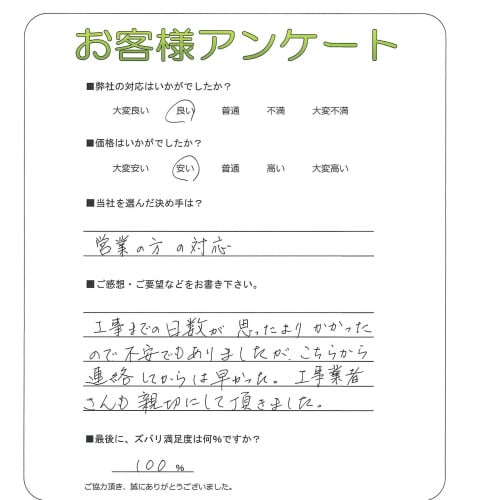 お客様アンケート
■弊社の対応はいかがでしたか？
大変良い　良い　普通　不満　大変不満
■価格はいかがでしたか？
大変安い　安い　普通　高い　大変高い
■当社を選んだ決め手は？
営業の方の対応
■ご感想・ご要望などをお書き下さい。
工事までの日数が思ったよりかかった
ので不安でもありましたが、こちらから
連絡してからは早かった。工事業者
さんも親切にして頂きました。
■最後に、ズバリ満足度は何％ですか？
100％
ご協力頂き、誠にありがとうございました。